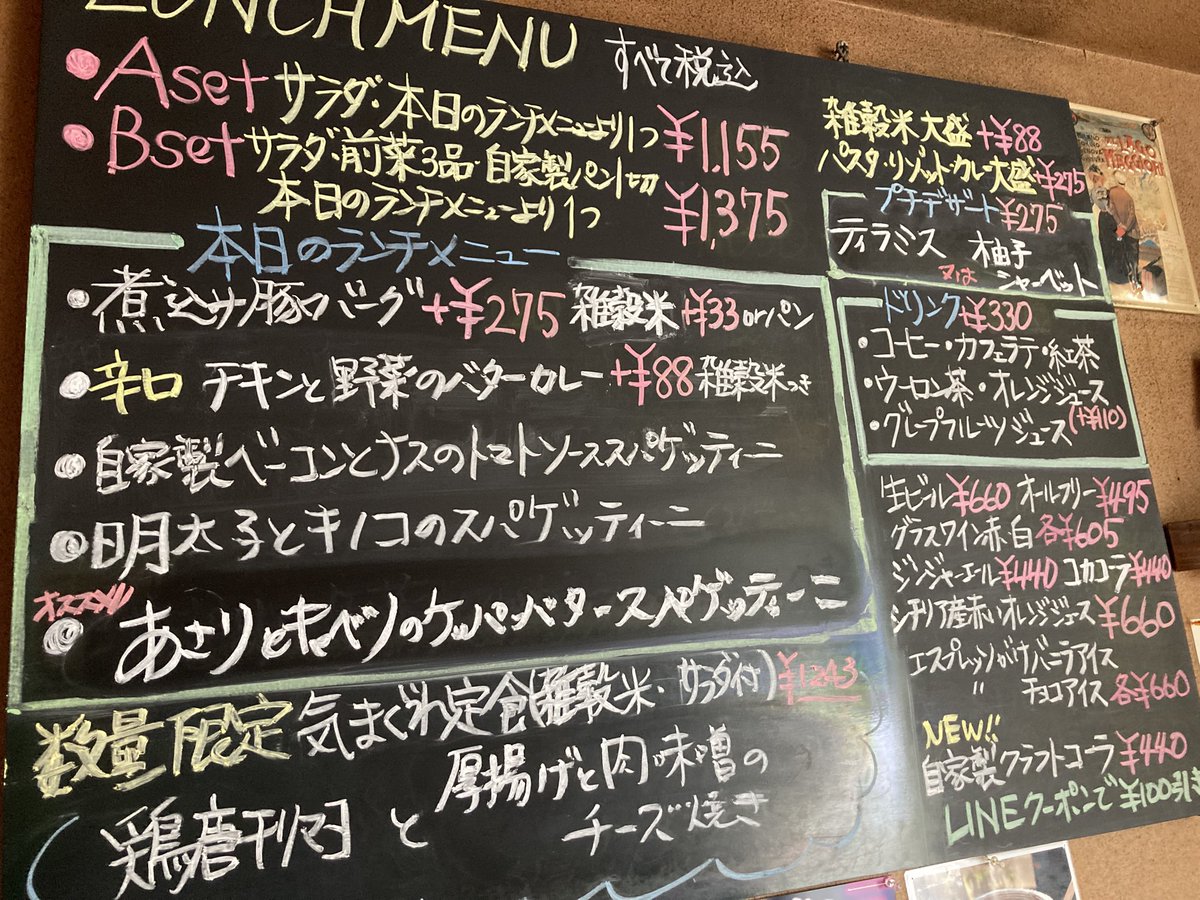 LUNCH MENU すべて税込
・Aset サラダ・本日のランチメニューより1つ ¥1,155
・Bset サラダ・前菜3品・自家製パン1切
本日のランチメニューより1つ ¥1,375
本日のランチメニュー
・煮込サルバーグ +¥275 雑穀米 +¥33 orパン
・辛口 チキンと野菜のバターカレー +¥88 雑穀米つき
・自家製ベーコンとナスのトマトソーススパゲッティーニ
・明太子とキノコのスパゲッティーニ
オススメ!!
・あさりとキャベツのケッパーバタースパゲッティーニ
数量限定 気まぐれ定食(雑穀米・サラダ付) ¥1243
鶏唐 と 厚揚げと肉味噌の
チーズ焼き
雑穀米大盛 +¥88
パスタ・リゾット・カレー大盛 +¥275
プチデザート ¥275
ティラミス 又は 柚子
シャーベット
ドリンク +¥330
・コーヒー・カフェラテ・紅茶
・ウーロン茶・オレンジジュース
・グレープフルーツジュース (+¥110)
生ビール ¥660 オールフリー ¥495
グラスワイン赤・白 各¥605
ジンジャーエール ¥440 コカコーラ ¥440
シチリア産赤いオレンジジュース ¥660
エスプレッソがけバニラアイス
〃 チョコアイス 各¥660
NEW!!
自家製クラフトコーラ ¥440
LINEクーポンで¥100引き